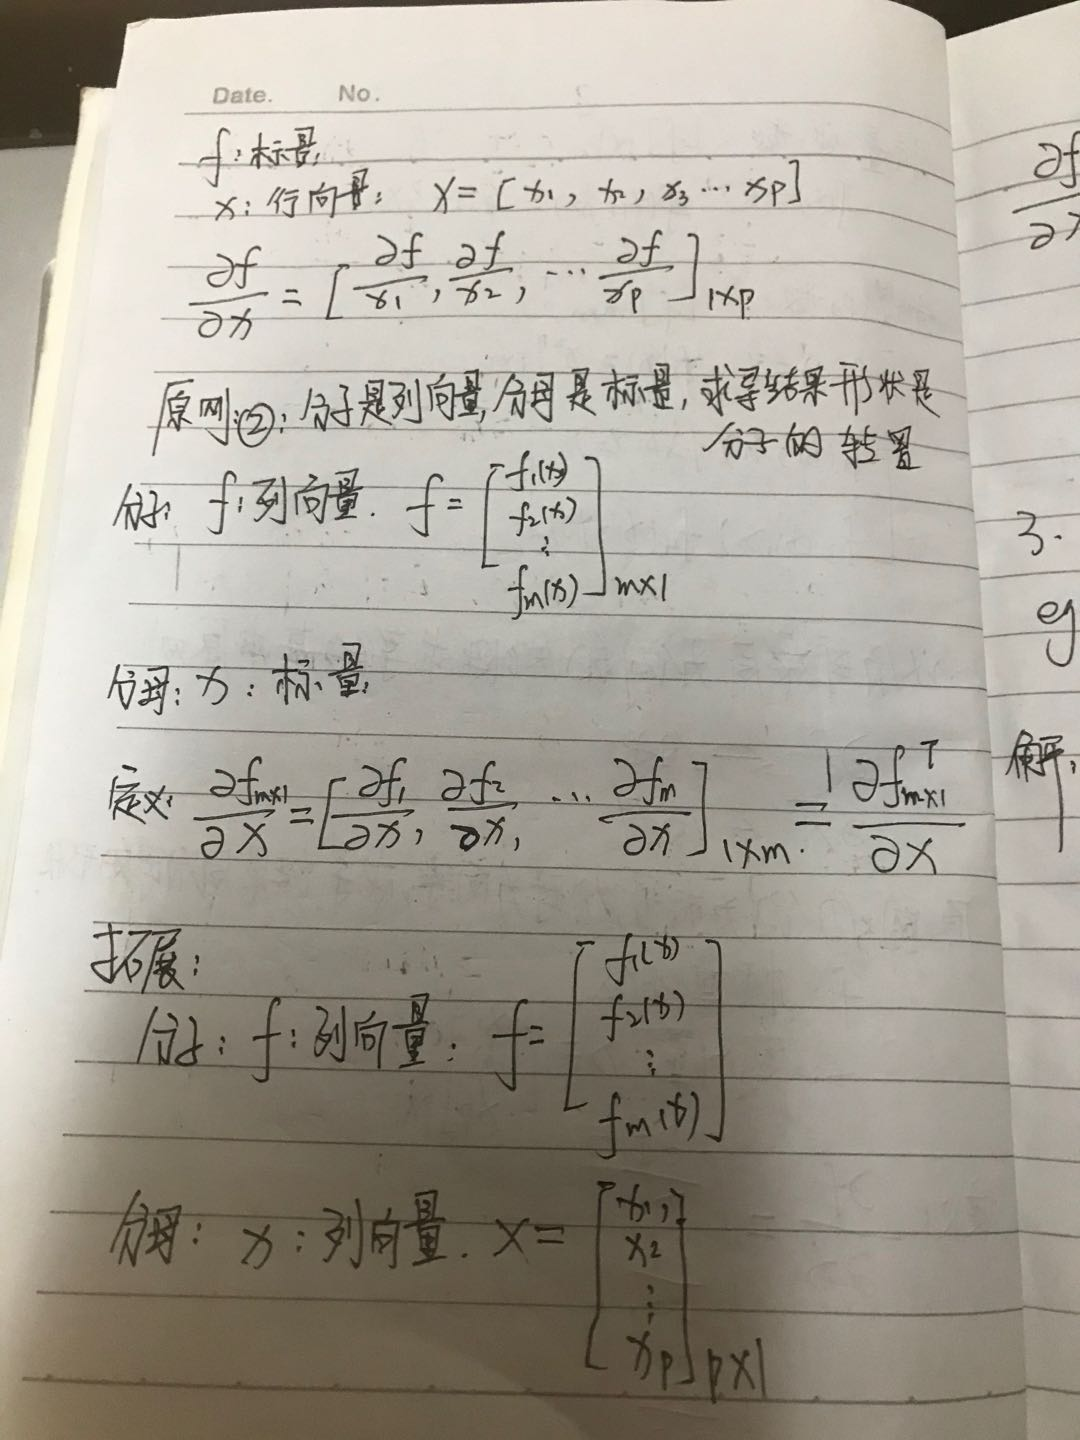 Date. No.
f: 标量;
x: 行向量; X = [x₁, x₂, x₃ ⋯ xp]
∂f/∂x = [∂f/x₁, ∂f/x₂, ⋯ ∂f/xp]1×p
原则②: 分子是列向量,分母是标量,求导结果形状是
分子的转置
分子: f: 列向量. f = [f₁(x) f₂(x) ⋮ fm(x)]m×1
分母: x: 标量;
定义: ∂fm×1/∂x = [∂f₁/∂x, ∂f₂/∂x, ⋯ ∂fm/∂x]1×m. = ∂fᵀm×1/∂x
拓展:
分子: f: 列向量. f = [f₁(x) f₂(x) ⋮ fm(x)]
分母: x: 列向量. X = [x₁, x₂ ⋮ xp]p×1
∂f
3.
eg
解: